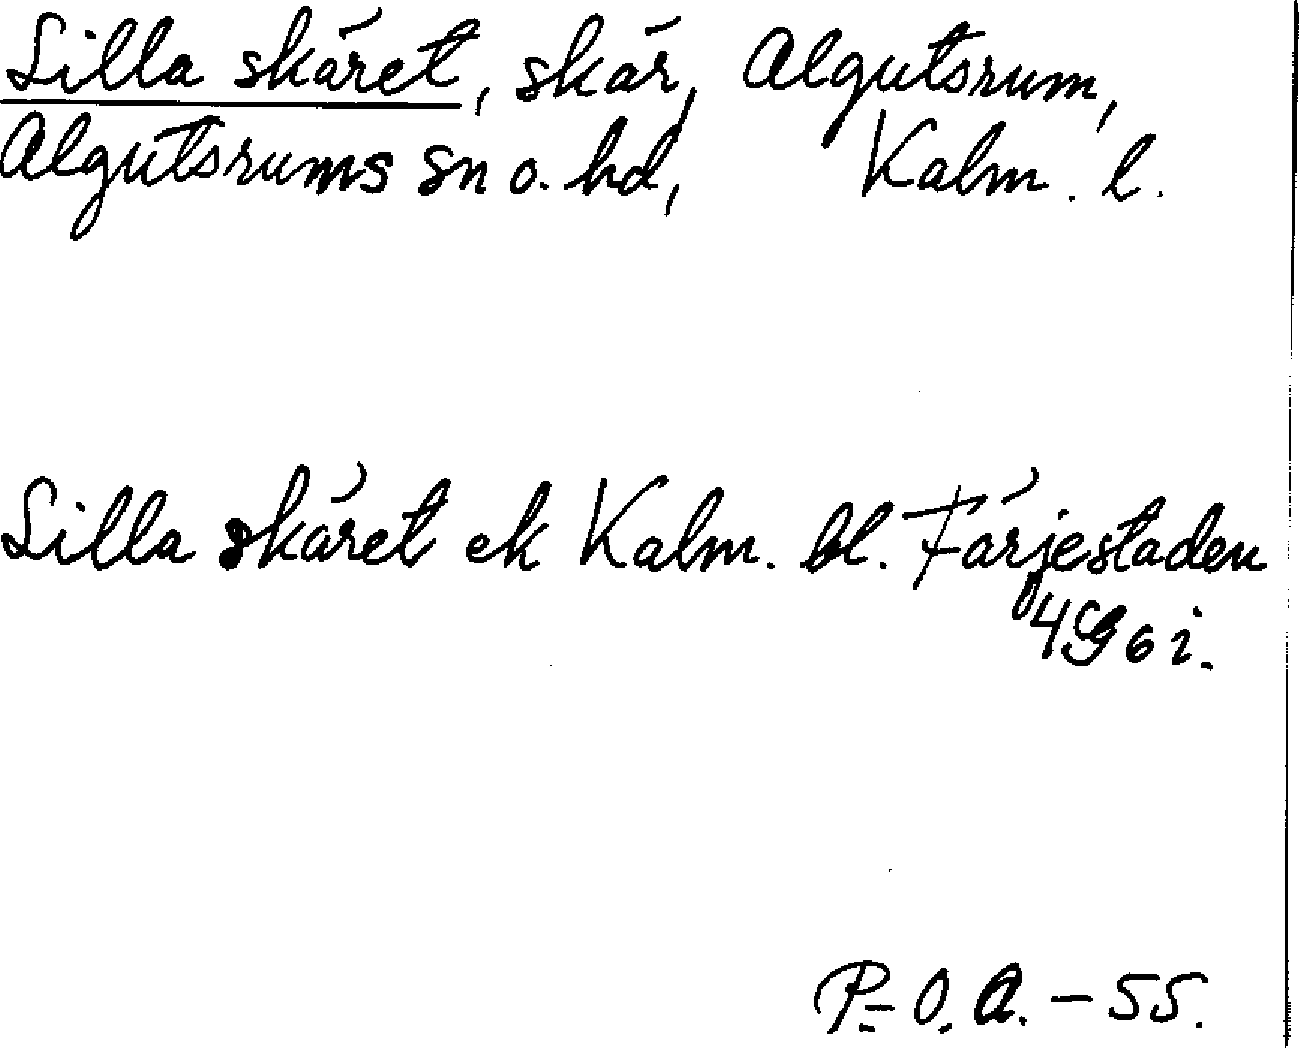 Lilla skäret, skär, Algutsrum,
Algutsrums sn o. hd, Kalm. l.
Lilla skäret ek Kalm. bl. Färjestaden
4G6i.
P.-O. A. - 55.